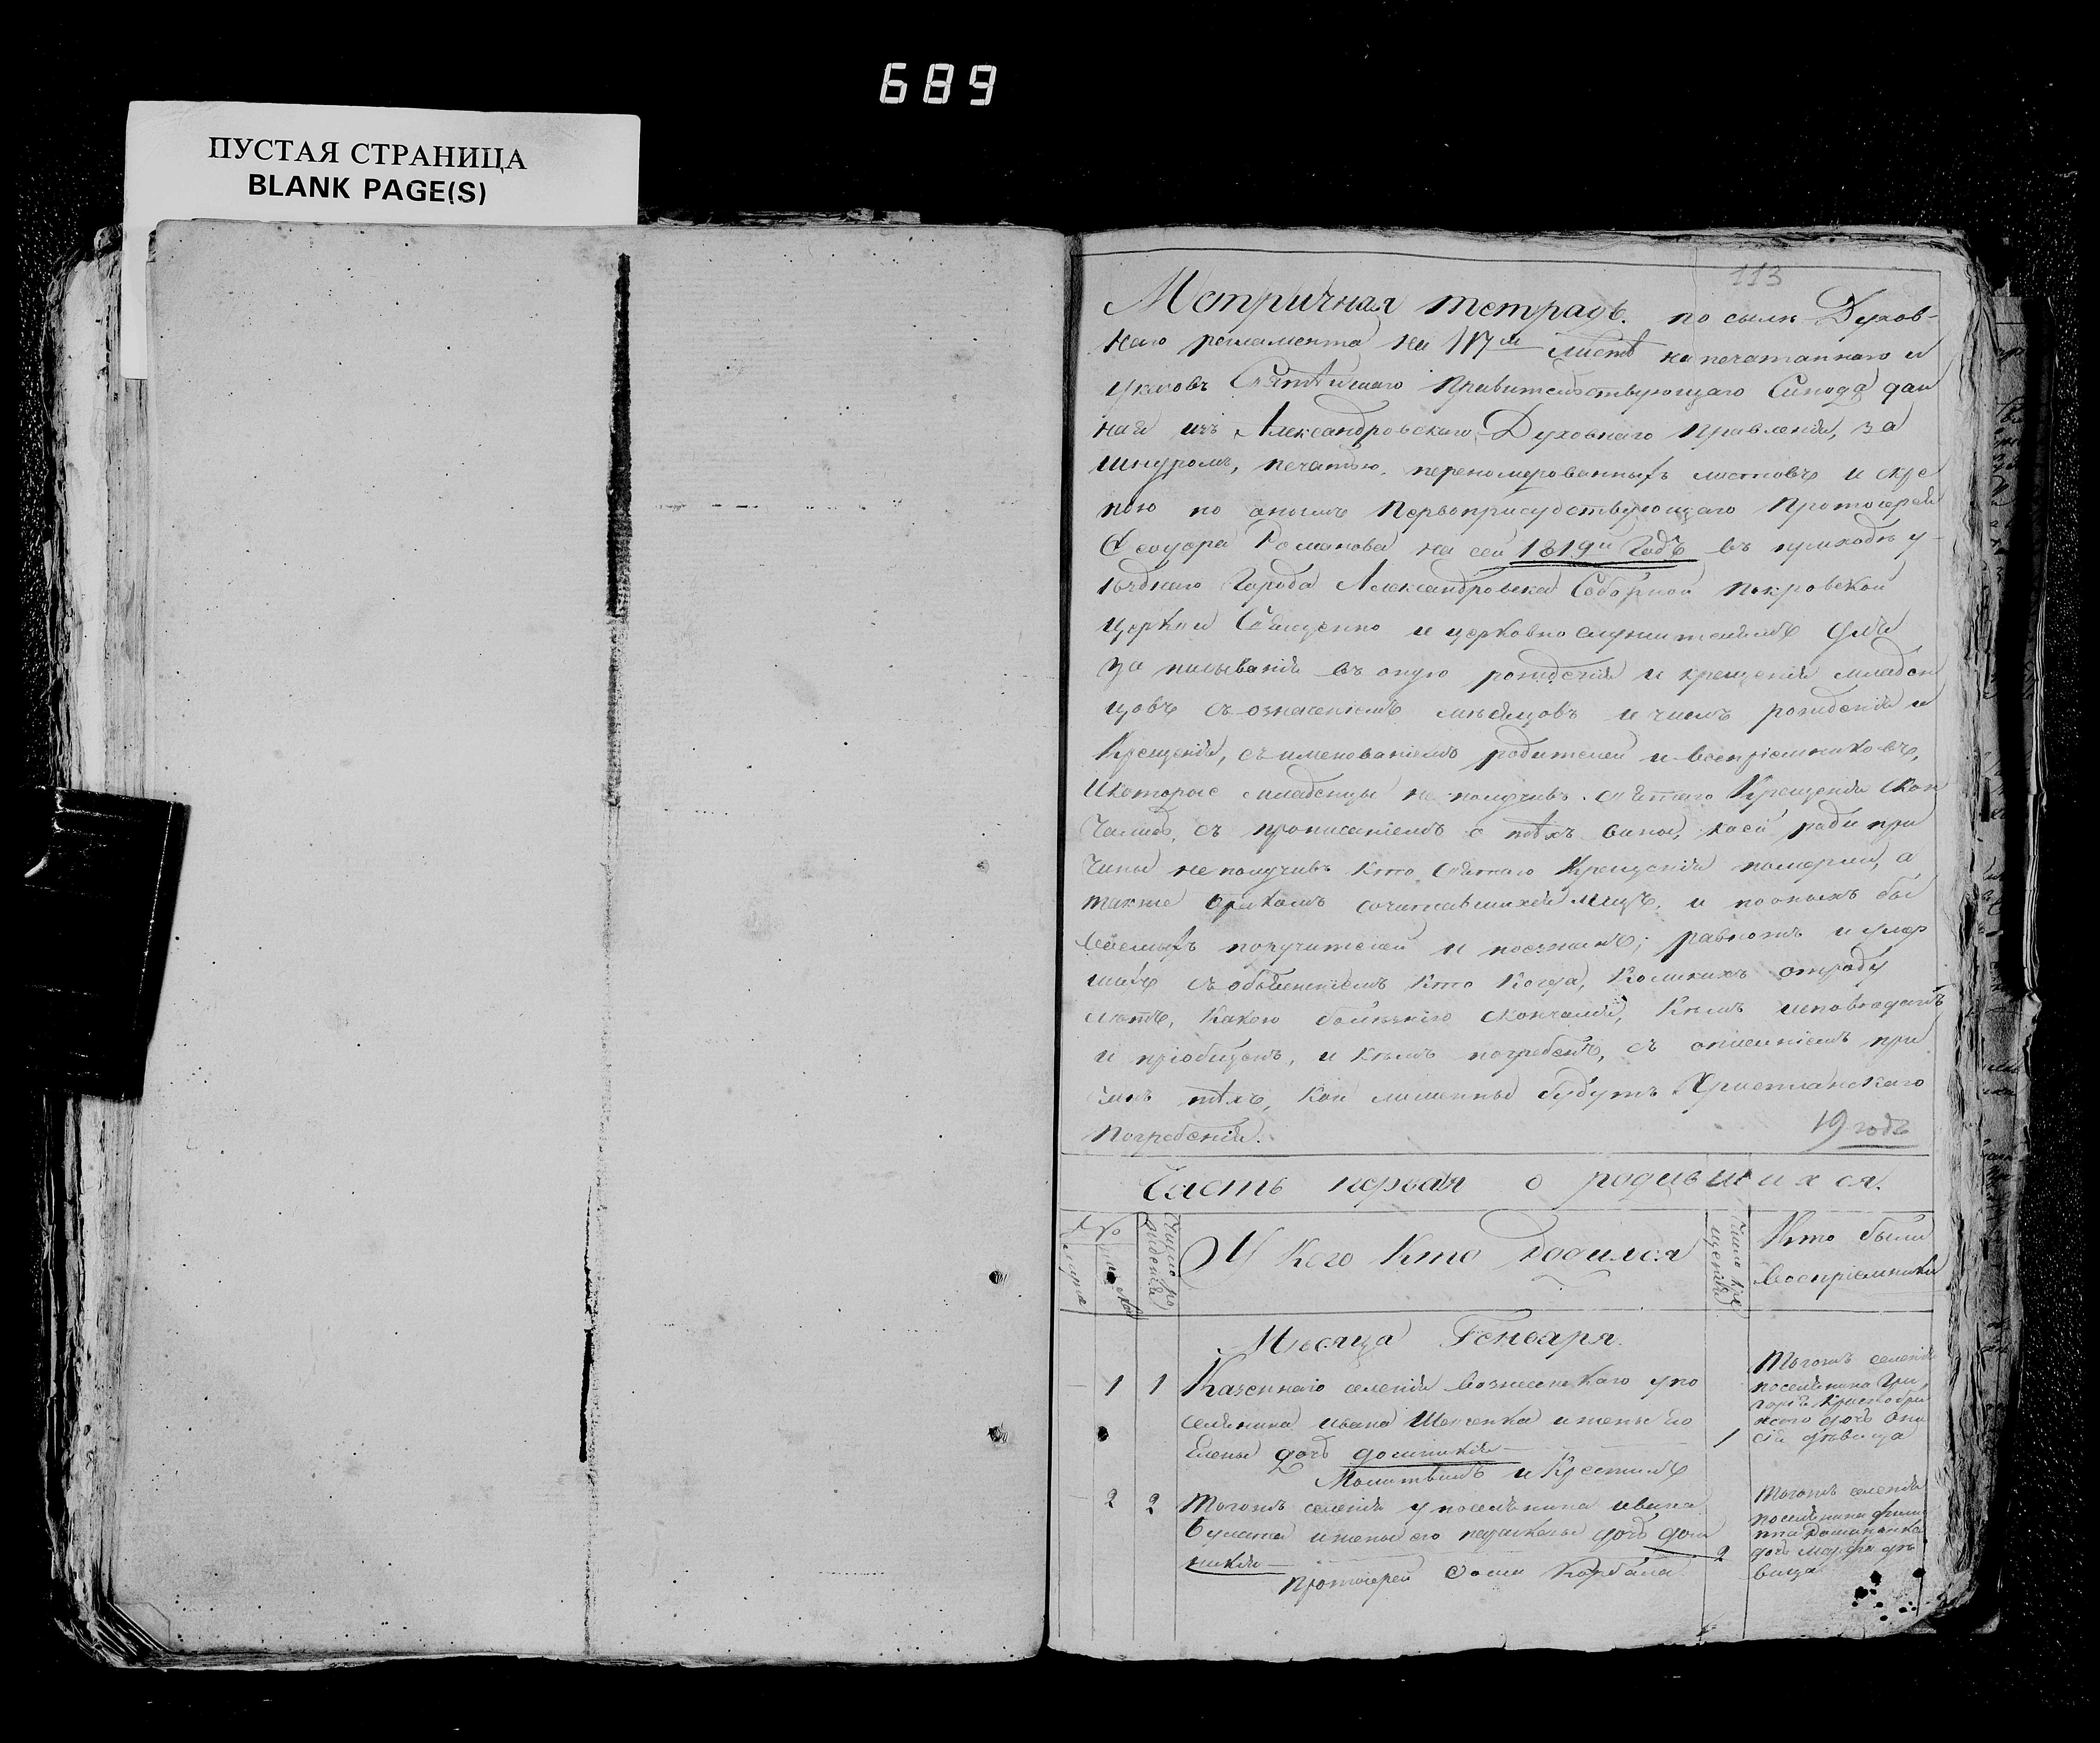 689
ПУСТАЯ СТРАНИЦА
BLANK PAGE(S)
113
Метричная тетрадь. по силѣ Духов-
наго регламента на 117м листѣ напечатаннаго и
указовъ Святѣйшаго Правительствующаго Синода дан
ная изъ Александровскаго Духовнаго Правленія, за
шнуромъ, печатью, перенумерованныхъ листовъ и скре
пою по онымъ Первоприсудствующаго Протоіерея
Феодора Романова на сей 1819й Годъ въ приходъ у
ѣзднаго Города Александровска Соборной Покровской
церкви Священно и церковно служителямъ для
записыванія въ оную рожденія и крещенія младен
цовъ съ означеніемъ мѣсяцовъ и чиселъ рожденія и
Крещенія, съ именованіемъ родителей и воспріемниковъ,
Которые младенцы не получивъ святаго Крещенія скон
чались, съ прописаніемъ о тѣхъ вины, коей ради при
чины не получивъ кто святаго Крещенія померли, а
также бракомъ сочитавшихся лицъ, и по оныхъ бы
ваемыхъ поручителей и поезжанъ; равномъ и умер
шихъ съ объявленіемъ кто когда, Коликихъ отроду
лѣтъ, какою болѣзнію скончался, кѣмъ исповѣданъ
и пріобщенъ, и кѣмъ погребенъ, съ описаніемъ при
чинъ тѣхъ, кои лишенны будутъ Христианскаго
Погребенія.
19 годъ
Часть первая о родившихся.
Число ро
жденія
У Кего Кто Родился
Число Кре
щенія
Кто были
Воспріемники
Мѣсяца Генваря.
1 1 Казеннаго селенія Вознесенскаго у по
селянина Ивана Шевченка и жены его
Елены дочь домникія
1
Тогожъ селенія
поселянина Гри
горія
дочь
дѣвица
Молитвилъ и Крестилъ
2 2 Тогожъ селенія у поселянина Ивана
Булата и жены его параскевы дочь дом
никія
2
Тогожъ селенія
поселянина фили
ппа
дочь Марфа дѣ
вица
Протоіерей